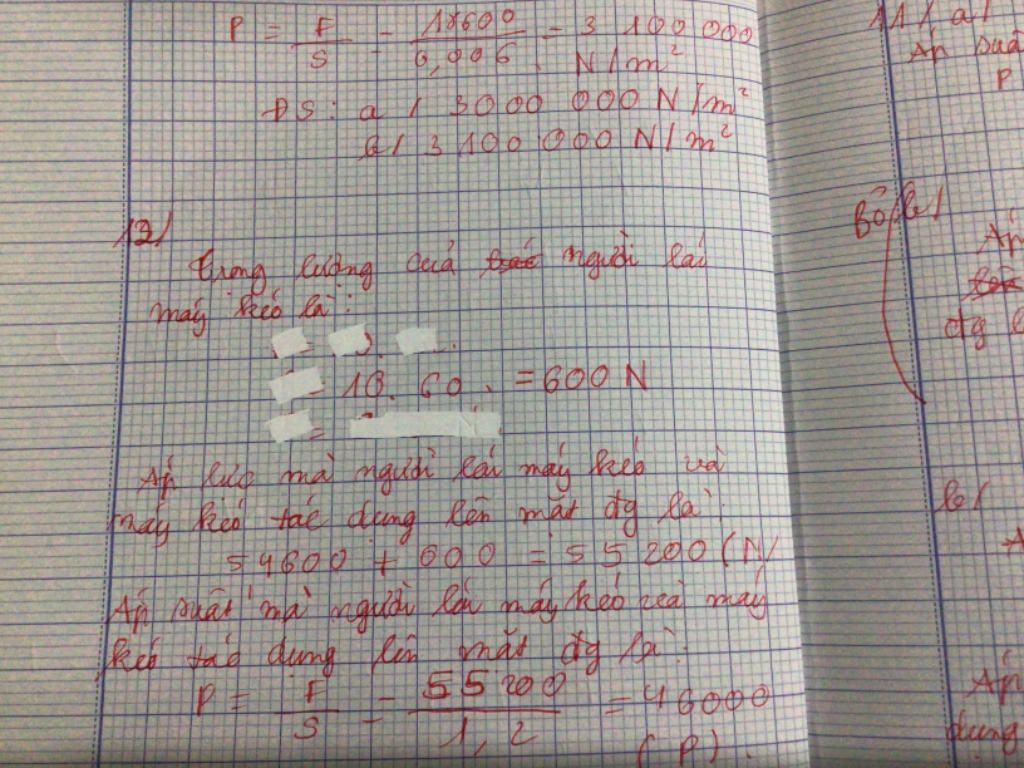 P = F/S = 18600/0,006 = 3 100 000 N/m²
ĐS: a/ 3000 000 N/m²
b/ 3 100 000 N/m²
12/
Trọng lượng của người lái
máy kéo là:
10. 60. = 600 N
Áp lực mà người lái máy kéo và
máy kéo tác dụng lên mặt đg là:
54600 + 600 = 55 200 (N)
Áp suất mà người lái máy kéo và máy
kéo tác dụng lên mặt đg là:
P = F/S = 55 200/1,2 = 46000
(P).
11/ a/
Áp suấ
P
Bỏ b/
Áp
đg l
b/
A
Áp
dụng